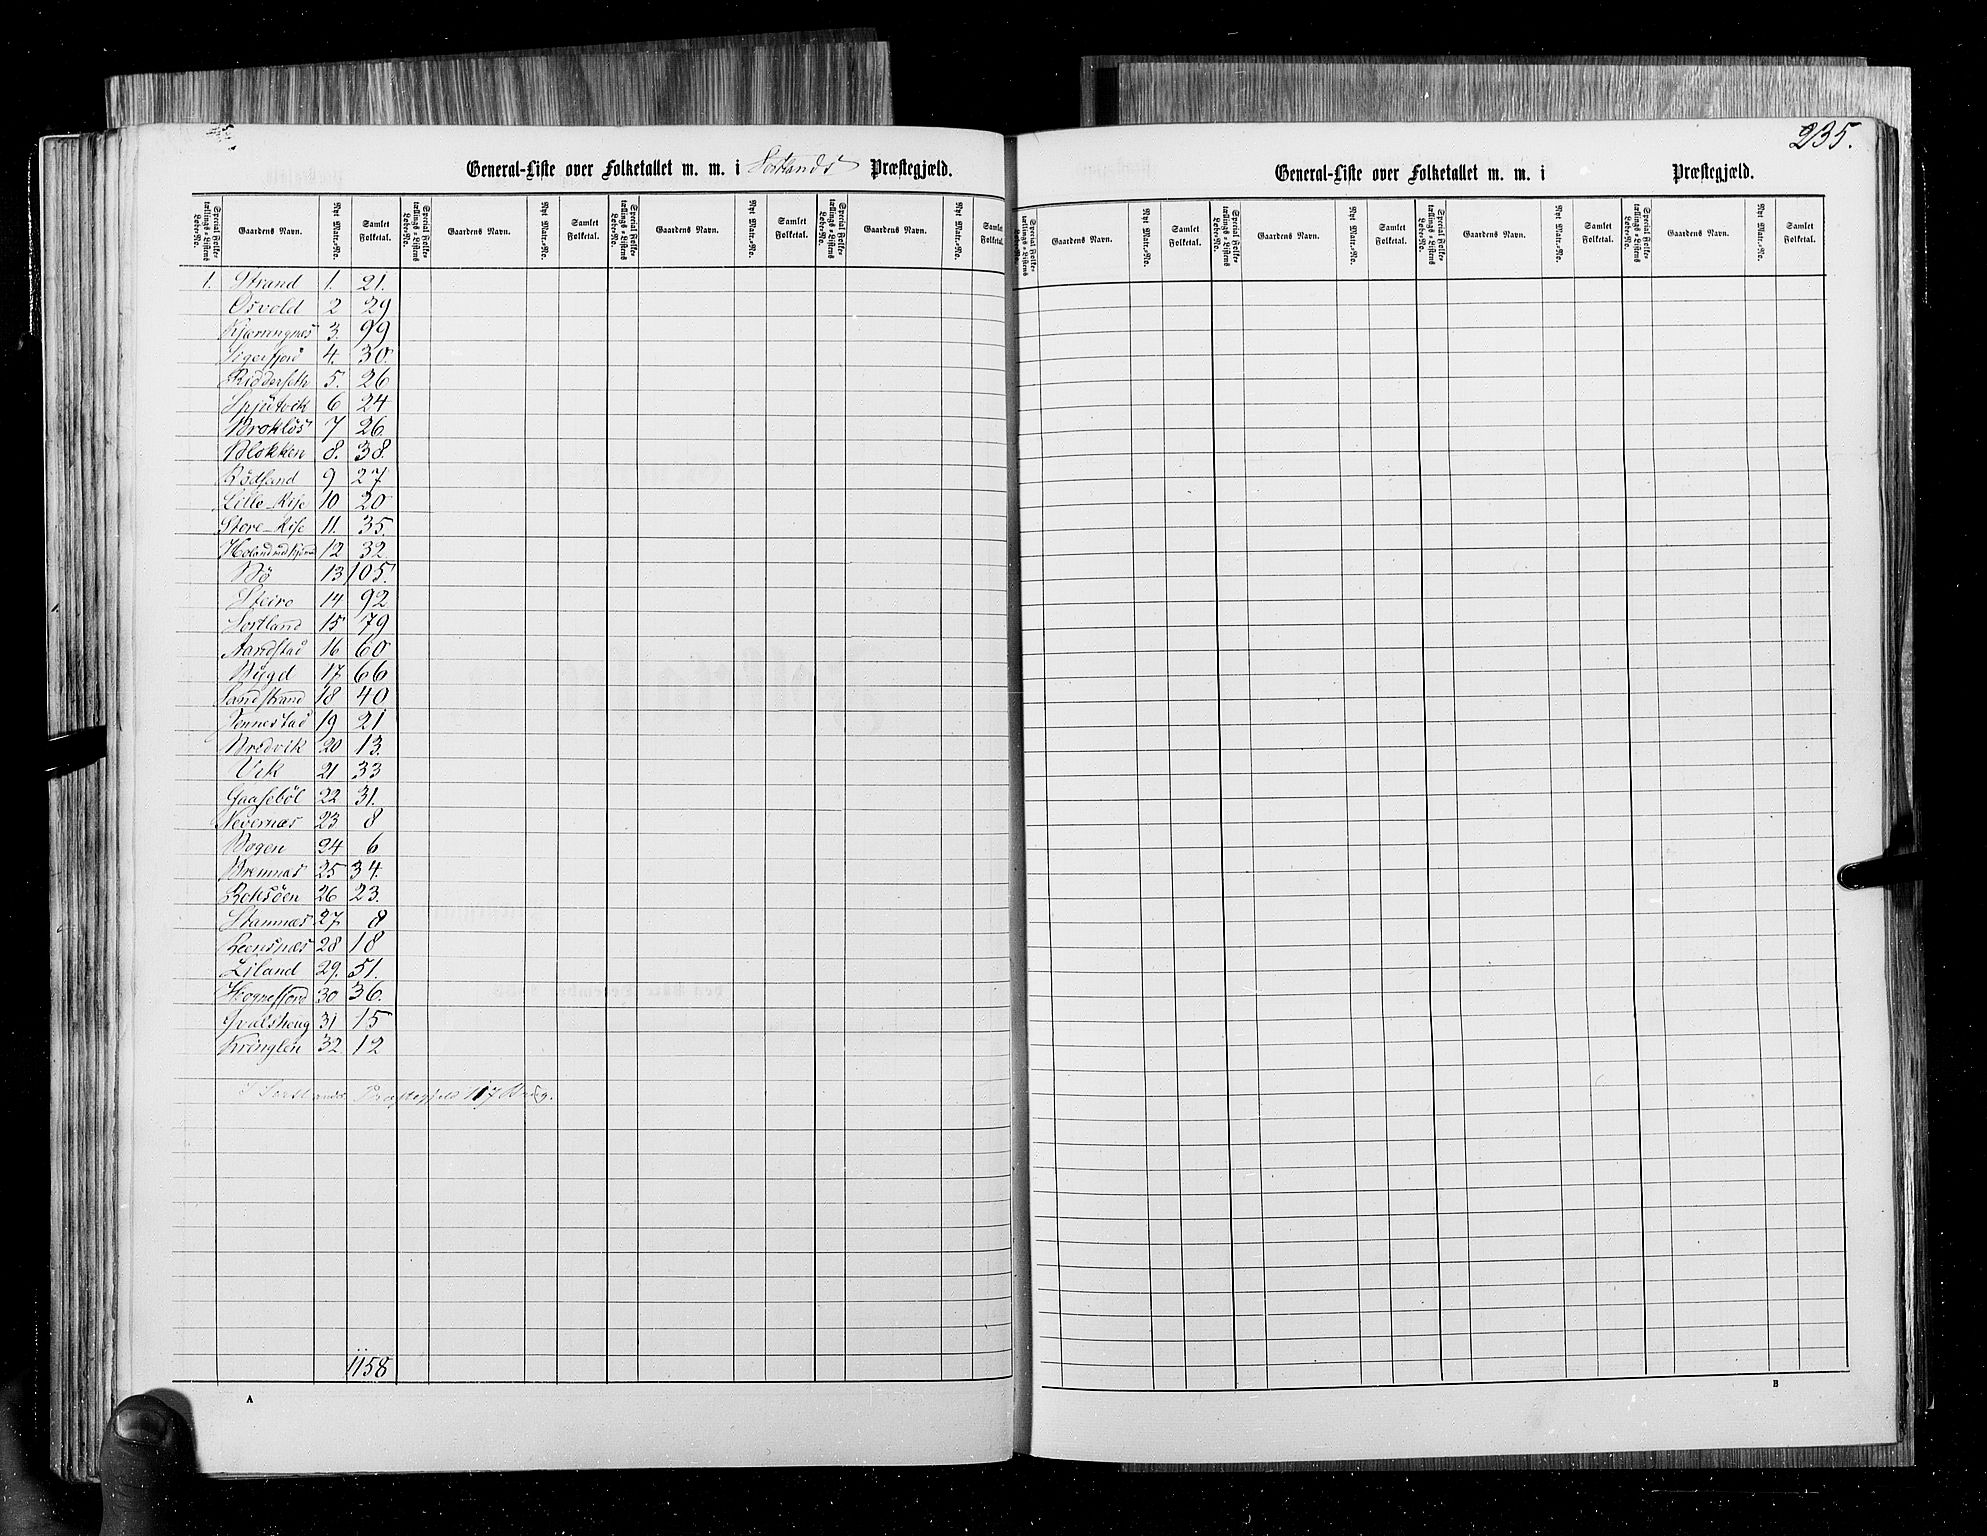 General-Liste over Folketallet m. m. i Sortlands Præstegjæld.
Special Folketællings-Listens Løbe-No. Gaardens Navn. Nyt Matr.-No. Samlet Folketal. Special Folketællings-Listens Løbe-No. Gaardens Navn. Nyt Matr.-No. Samlet Folketal. Special Folketællings-Listens Løbe-No. Gaardens Navn. Nyt Matr.-No. Samlet Folketal. Special Folketællings-Listens Løbe-No. Gaardens Navn. Nyt Matr.-No. Samlet Folketal.
1. Strand 1. 21.
Osvold 2 29
Kjærringnæs 3. 99
Sigerfjord 4. 30.
Ridderseth 5. 26
Spjutvik 6 24
Brokløs 7 26
Blokken 8. 38.
Rödsand 9 27
Lille-Kise 10 20
Store-Kise 11. 35.
12 32.
Bö 13 105.
Steiro 14 92
Sortland 15 79
Aandstad 16 60
Bygd 17 66
Sandstrand 18 40
Jennestad 19 21
Bredvik 20 13.
Vik 21 33
Gaasebøl 22 31.
Nevernæs 23 8
Bogen 24 6
Bremnæs 25 34.
Roksöen 26 23.
Stamnæs 27. 8
Reensnæs 28 18
Liland 29. 51.
Hognefjord 30 36.
Kvalshoug 31 15
Kringlen 32. 12
I Sortlands Præstegjeld 117 Brug.
1158
A
235.
General-Liste over Folketallet m. m. i Præstegjæld.
Special Folketællings-Listens Løbe-No. Gaardens Navn. Nyt Matr.-No. Samlet Folketal. Special Folketællings-Listens Løbe-No. Gaardens Navn. Nyt Matr.-No. Samlet Folketal. Special Folketællings-Listens Løbe-No. Gaardens Navn. Nyt Matr.-No. Samlet Folketal. Special Folketællings-Listens Løbe-No. Gaardens Navn. Nyt Matr.-No. Samlet Folketal.
B